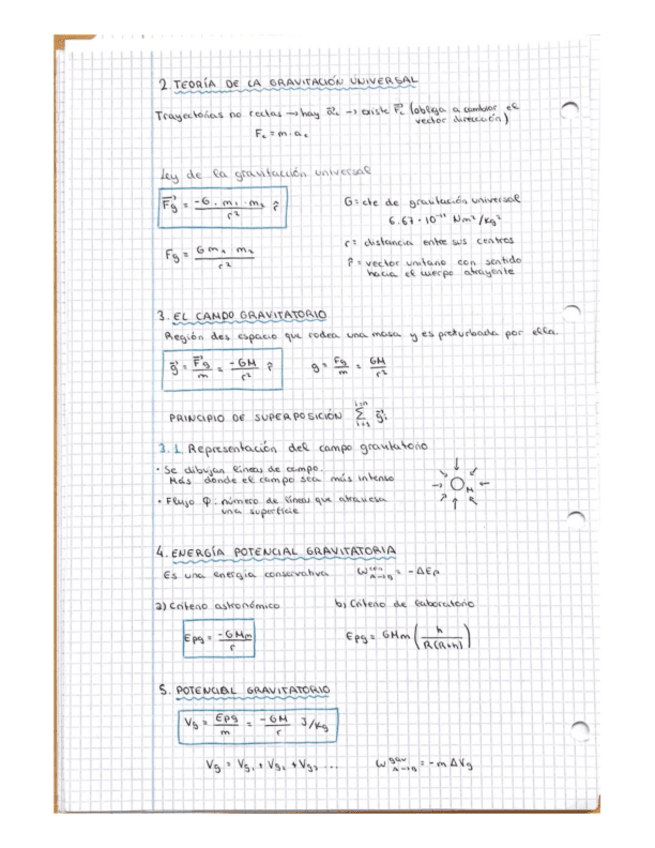 2. TEORÍA DE LA GRAVITACIÓN UNIVERSAL
Trayectorias no rectas → hay a⃗c → existe F⃗c (obliga a cambiar el vector dirección)
Fc = m·ac
Ley de la gravitación universal
F⃗g = -G·m₁·m₂ / r² r̂
G = cte de gravitación universal
6.67·10⁻¹¹ Nm²/kg²
Fg = G m₁ m₂ / r²
r = distancia entre sus centros
r̂ = vector unitario con sentido
hacia el cuerpo atrayente
3. EL CAMPO GRAVITATORIO
Región des espacio que rodea una masa y es preturbada por ella.
g⃗ = F⃗g / m = -GM / r² r̂
g = Fg / m = GM / r²
PRINCIPIO DE SUPERPOSICIÓN Σ g⃗i
3.1. Representación del campo gravitatorio
· Se dibujan líneas de campo.
Más donde el campo sea más intenso
M
· Flujo φ: número de líneas que atraviesa
una superficie
4. ENERGÍA POTENCIAL GRAVITATORIA
Es una energía conservativa
W A→B = -ΔEp
a) Criterio astronómico
b) Criterio de laboratorio
Epg = -GMm / r
Epg = GMm (h / R(R+h))
5. POTENCIAL GRAVITATORIO
Vg = Epg / m = -GM / r J/kg
Vg = Vg₁ + Vg₂ + Vg₃ ...
W grav A→B = -m ΔVg